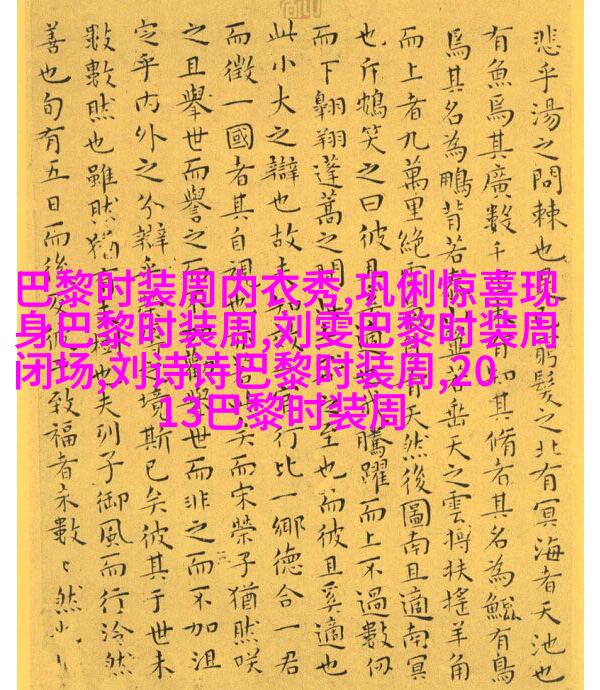 巴黎时装周内衣秀,巩俐惊喜现
身巴黎时装周,刘雯巴黎时装周
闭场,刘诗诗巴黎时装周,20
13巴黎时装周
悲乎湯之問棘也髮之北有冥海者天池也
有魚焉其廣數千有知其脩者其名為鯤有鳥
焉其名為鵬背若垂天之雲摶扶搖羊角
而上者九萬里絕雲天然後圖南且適南冥
也斥鴳笑之曰彼且適也騰躍而上不過數仞
而下翱翔蓬蒿之間之至也而彼且奚適也
此小大之辯也故夫行比一鄉德合一君
而徵一國者其自視也矣而宋榮子猶然咲
之且舉世而譽之而勸世而非之而不加沮
定乎內外之分辯乎之境斯已矣彼其于世未
數數然也雖然猶有也夫列子御風而行泠然
善也旬有五日而後致福者未數〻然也